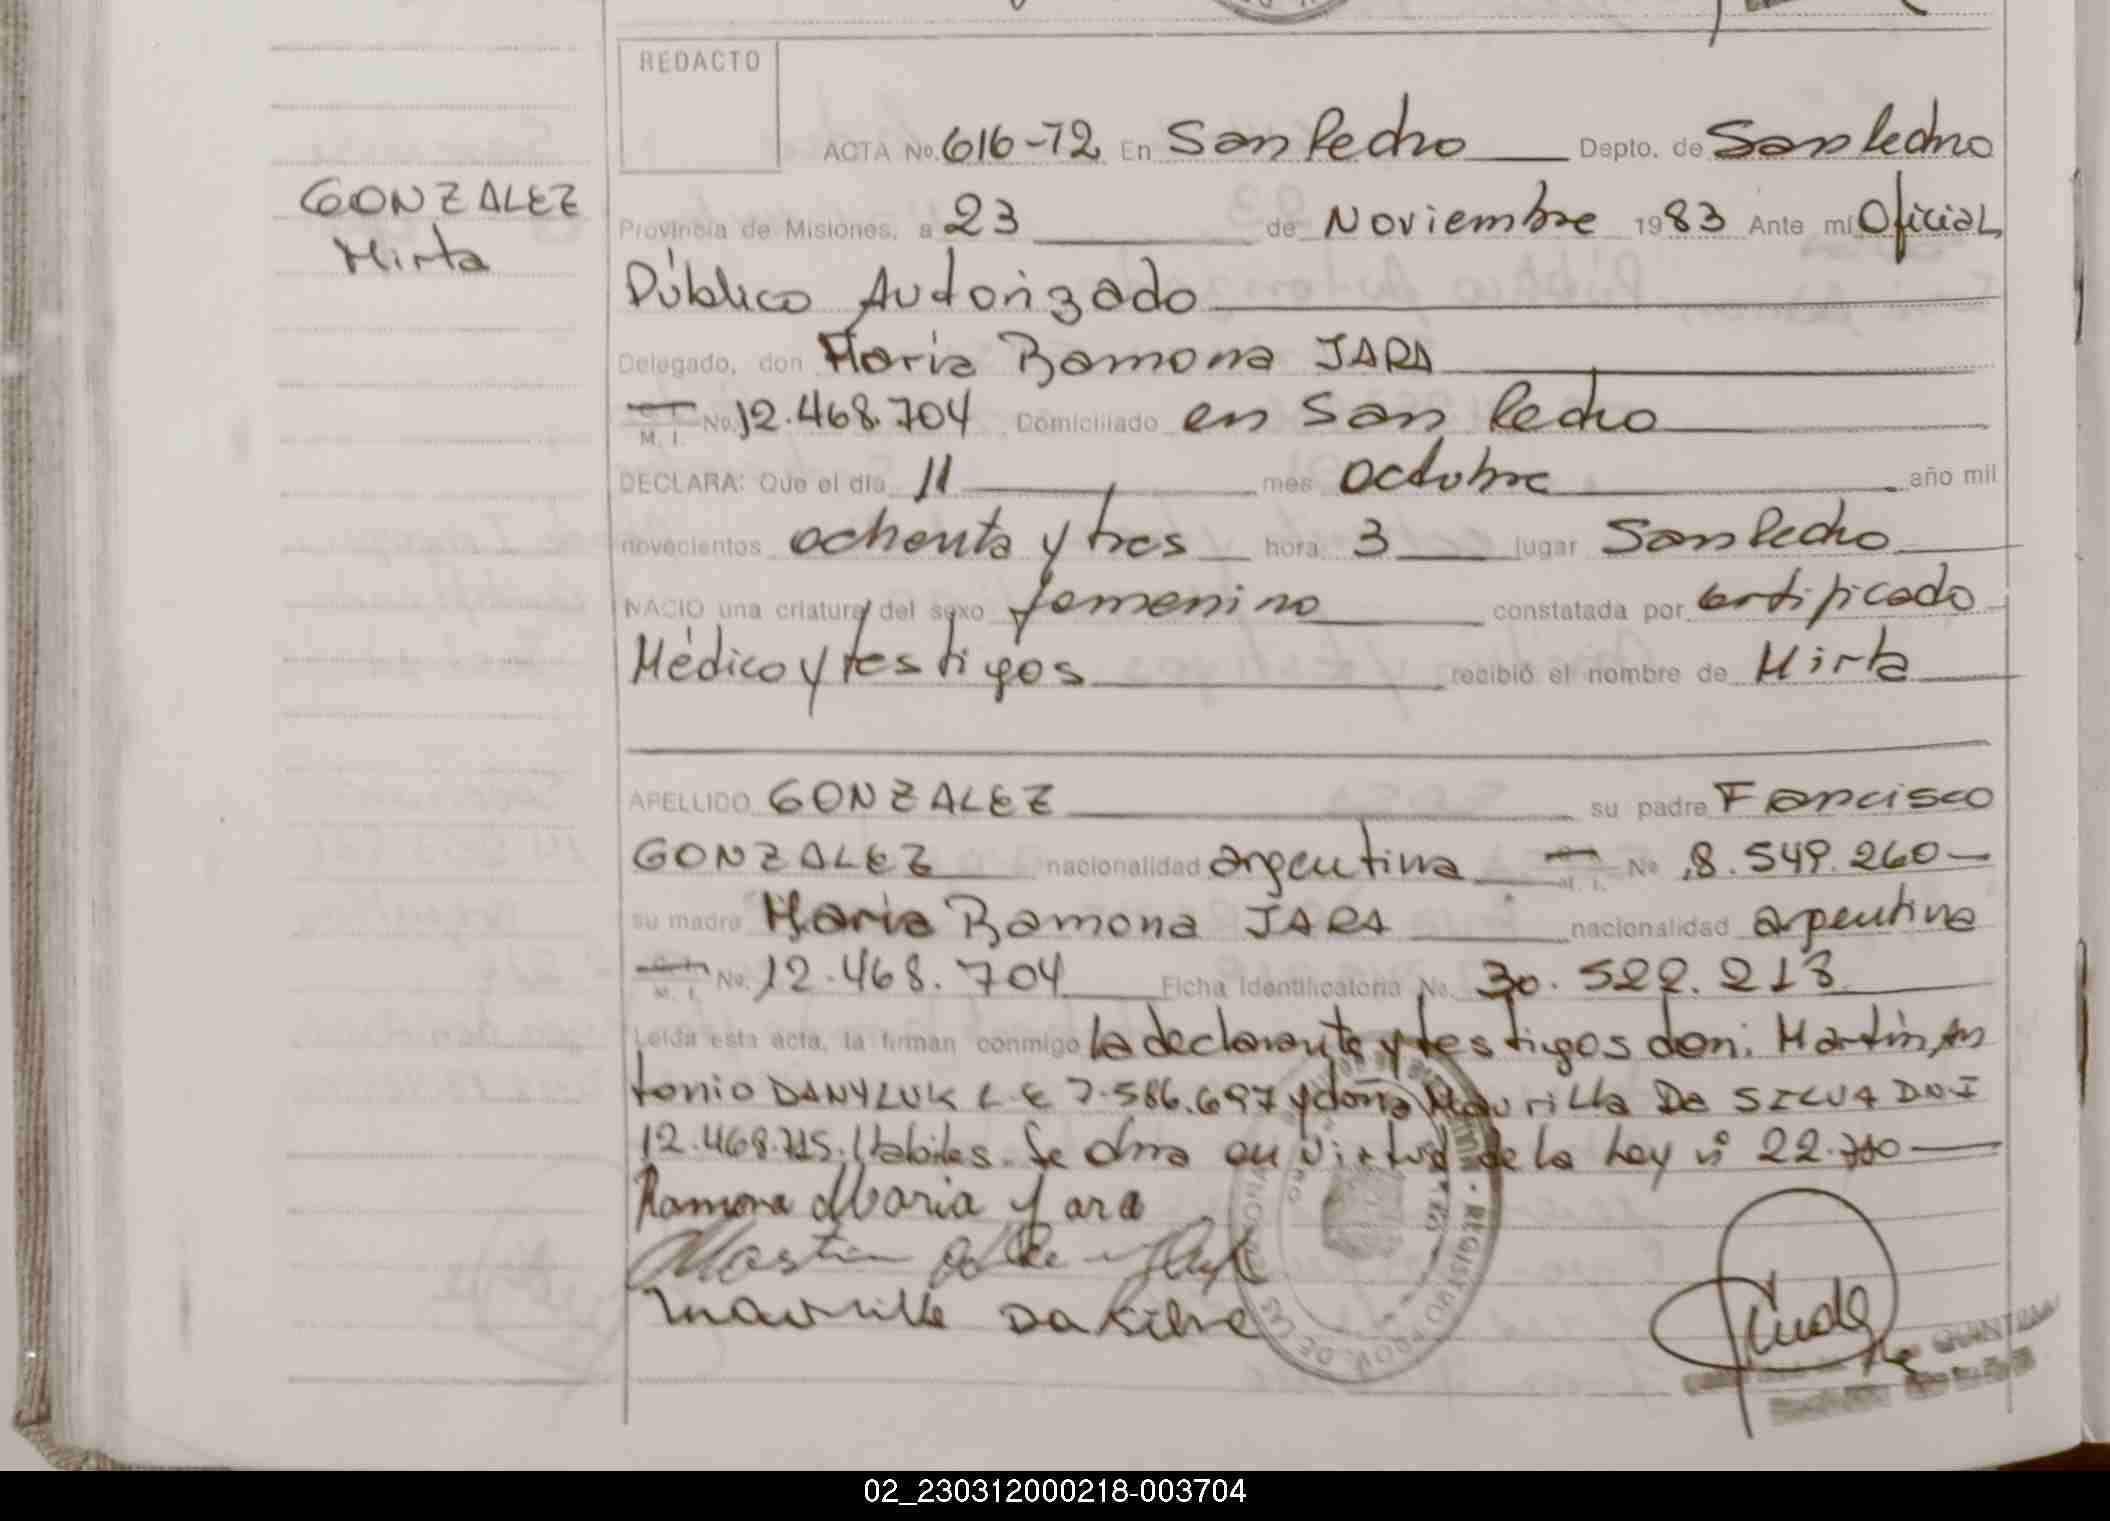 REDACTO
ACTA No. 616-72 En San Pedro Depto. de San Pedro
GONZALEZ
Mirta
Provincia de Misiones, a 23 de Noviembre 1983 Ante mí Oficial
Público Autorizado
Delegado, don María Ramona JARA
M. I. No. 12.468.704 Domiciliado en San Pedro
DECLARA: Que el día 11 mes octubre año mil
novecientos ochenta y tres hora 3 lugar San Pedro
NACIO una criatura del sexo femenino constatada por certificado
Médico y testigos recibió el nombre de Mirta
APELLIDO GONZALEZ su padre Francisco
GONZALEZ nacionalidad argentina M. I. No 8.549.260
su madre María Ramona JARA nacionalidad argentina
M. I. No. 12.468.704 Ficha Identificatoria No. 30.522.213
Leída esta acta, la firman conmigo la declarante y testigos don: Martín An
tonio DANYLUK L E 7.586.697 y doña Maurilia DA SILVA DNI
12.468.715. Habiles. Se obra en virtud de la Ley nº 22.770
Ramona Maria Jara
Martin
Maurilia Da Silva
REGISTRO PROV. DE LAS
02_230312000218-003704